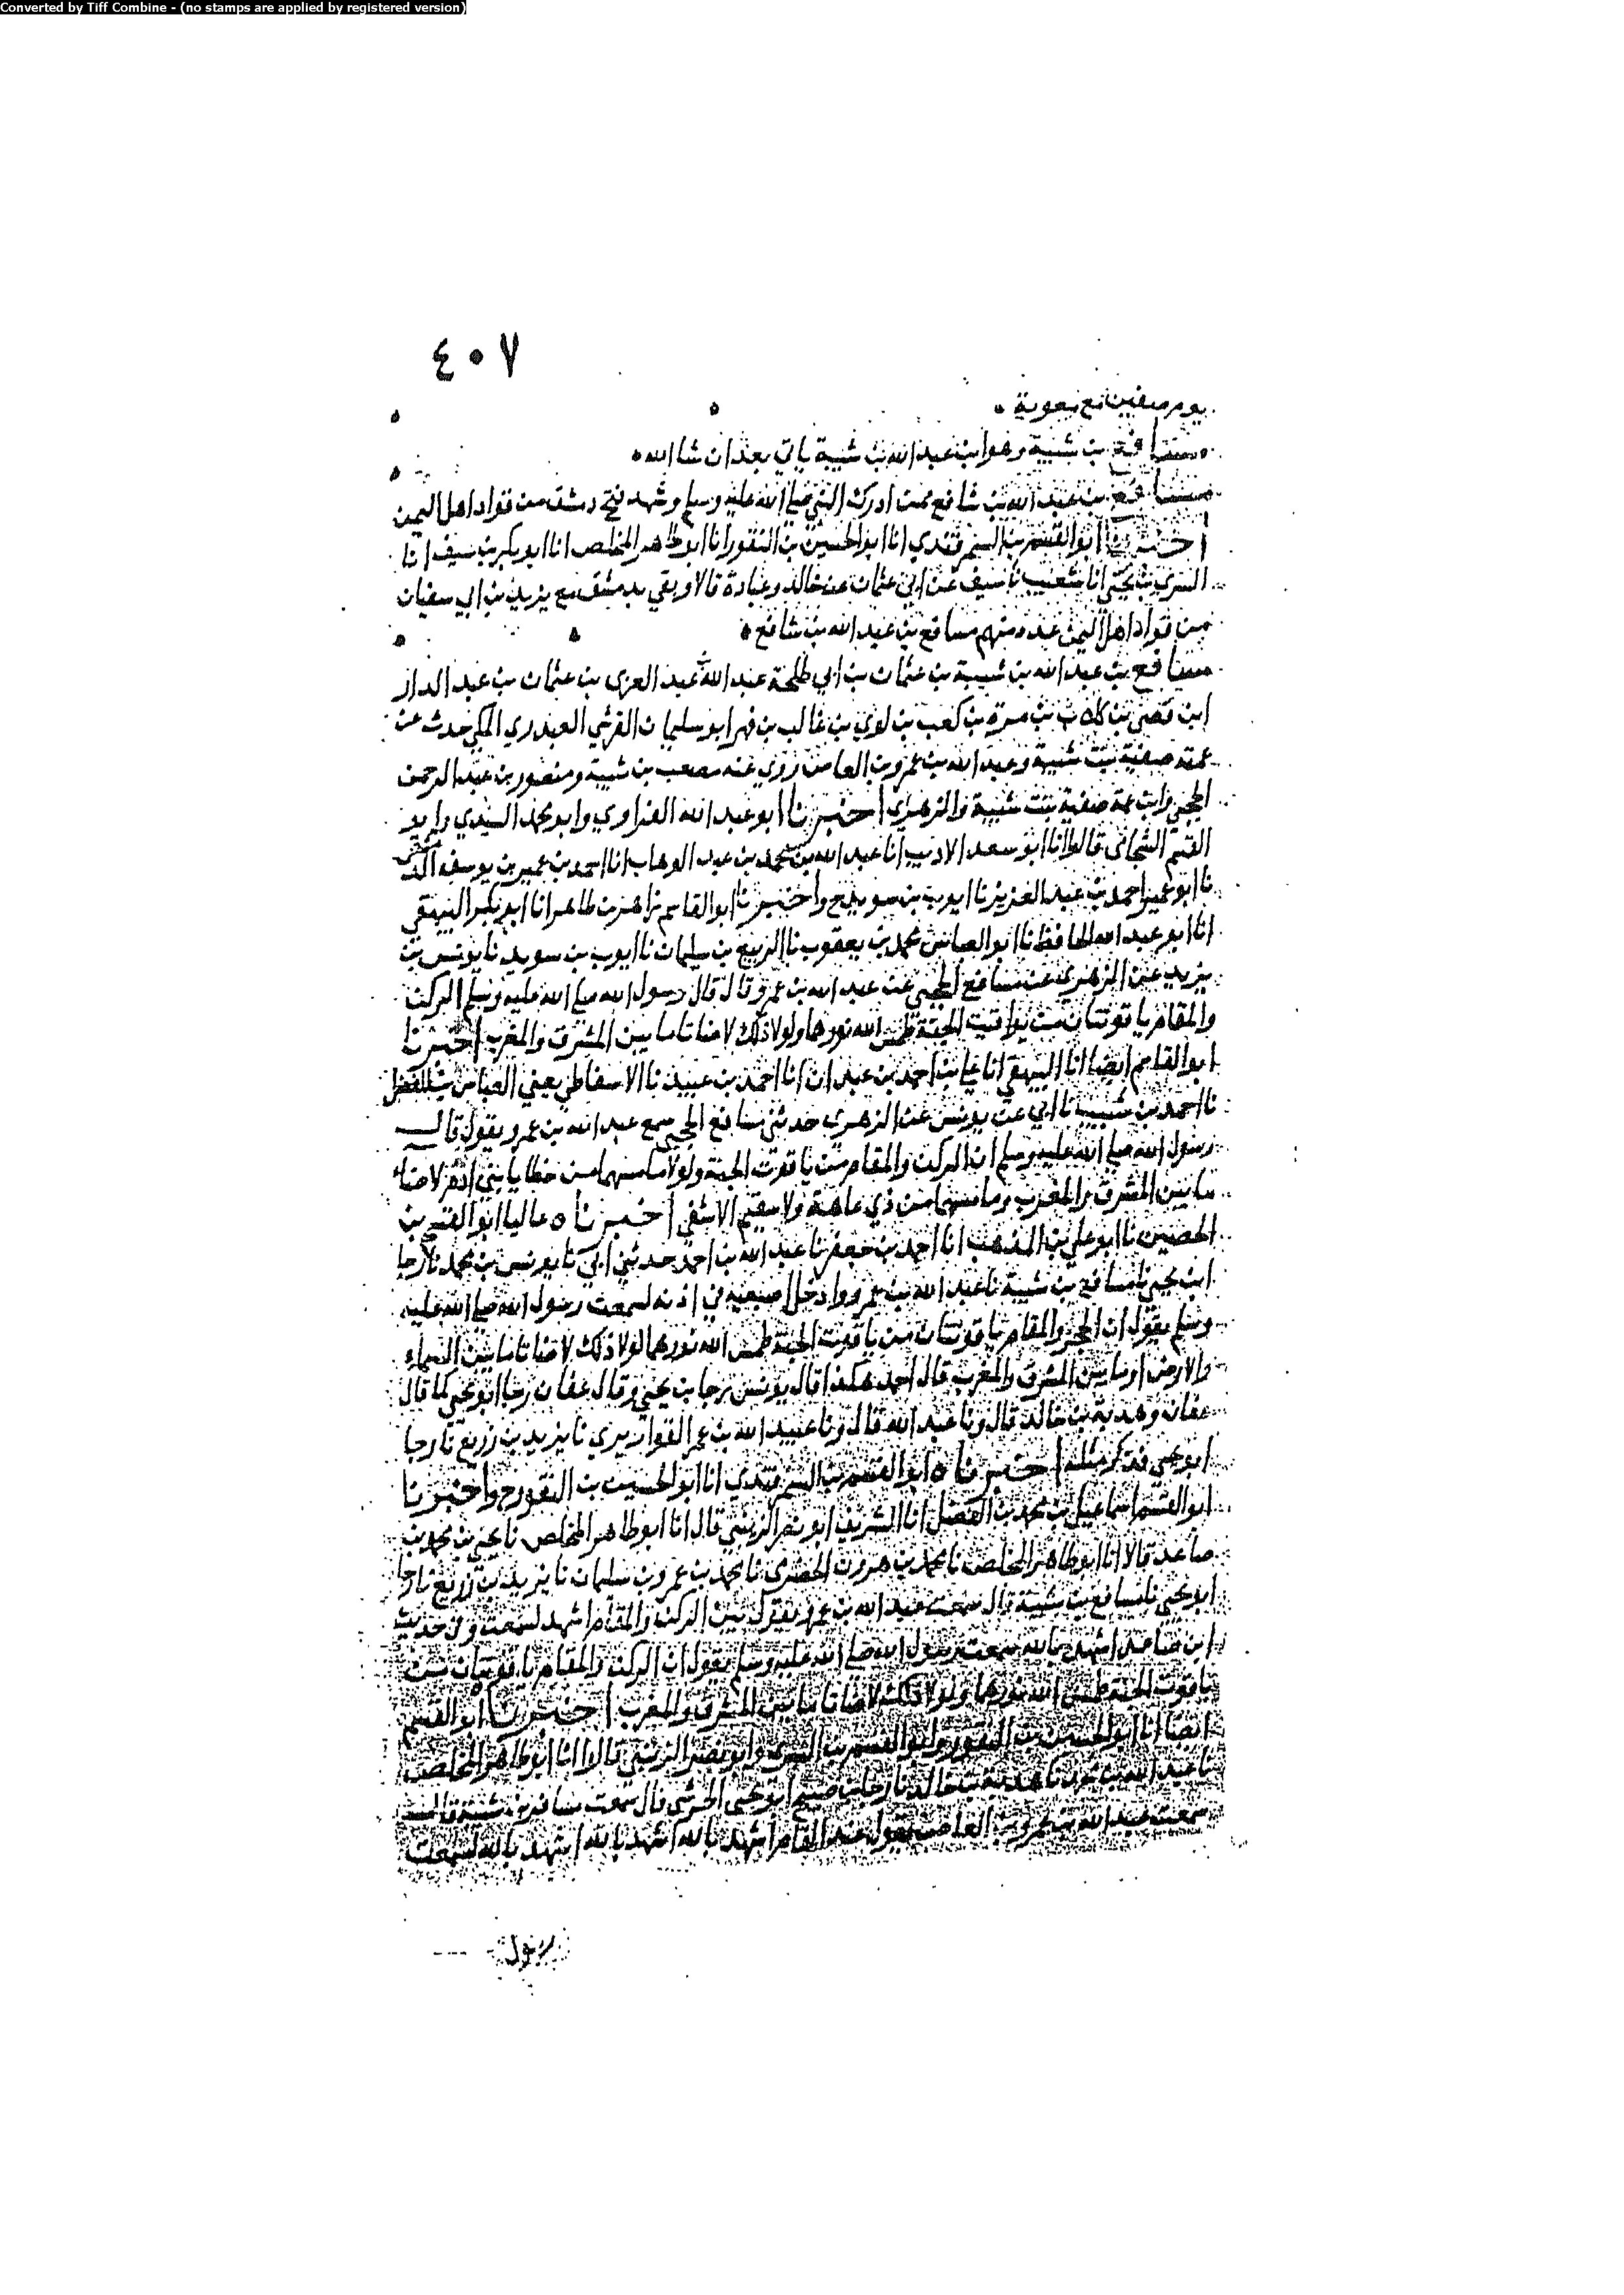 Converted by Tiff Combine - (no stamps are applied by registered version)
٤٠٧
يوم صفين مع معوية
مسافع بن شيبة وهو ابن عبد الله بن شيبة ياتي بعد ان شا الله
مسافع بن عبد الله بن شافع ممن ادرك النبي صلى الله عليه وسلم وشهد فتح دمشق من قواد اهل اليمن
اخبرنا ابو القسم بن السمرقندي انا ابو الحسين بن النقور انا ابو طاهر المخلص انا ابو بكر بن سيف انا
السري بن يحيى انا شعيب نا سيف عن ابي عثمان عن خالد وعبادة قالا وبقي بدمشق مع يزيد بن ابي سفيان
من قواد اهل اليمن عدد منهم مسافع بن عبد الله بن شافع
مسافع بن عبد الله بن شيبة بن عثمان بن ابي طلحة عبد الله بن عبد العزى بن عثمان بن عبد الدار
ابن قصي بن كلاب بن مرة بن كعب بن لوي بن غالب بن فهر ابو سليمان القرشي العبدري المكي حدث عن
عمته صفية بنت شيبة وعبد الله بن عمرو بن العاص روى عنه مصعب بن شيبة ومنصور بن عبد الرحمن
الحجبي وابن عمة صفية بنت شيبة والزهري اخبرنا ابو عبد الله الفراوي وابو محمد السيدي وابو
القسم الشحامي قالوا انا ابو سعد الاديب انا عبد الله بن محمد بن عبد الوهاب انا احمد بن عمير بن يوسف
نا ابو عمير احمد بن عبد العزيز نا ايوب بن سويد ح واخبرنا ابو القاسم زاهر بن طاهر انا ابو بكر البيهقي
انا ابو عبد الله الحافظ نا ابو العباس محمد بن يعقوب نا الربيع بن سليمان نا ايوب بن سويد نا يونس بن
يزيد عن الزهري عن مسافع الحجبي عن عبد الله بن عمرو قال قال رسول الله صلى الله عليه وسلم الركن
والمقام ياقوتتان من يواقيت الجنة طمس الله نورهما ولولا ذلك لاضاتا ما بين المشرق والمغرب اخبرنا
ابو القاسم ايضا انا البيهقي انا علي بن احمد بن عبدان انا احمد بن عبيد نا الاسفاطي يعني العباس بن الفضل
نا احمد بن شبيب نا ابي عن يونس عن الزهري حدثني مسافع الحجبي سمع عبد الله بن عمرو يقول قال
رسول الله صلى الله عليه وسلم ان الركن والمقام من ياقوت الجنة ولولا ما مسهما من خطايا بني ادم لاضاء
ما بين المشرق والمغرب وما مسهما من ذي عاهة ولا سقيم الا شفي اخبرناه عاليا ابو القسم بن
الحصين نا ابو علي بن المذهب انا احمد بن جعفر نا عبد الله بن احمد حدثني ابي نا يونس بن محمد نا رجا
ابن يحيى نا مسافع بن شيبة نا عبد الله بن عمرو وادخل اصبعيه في اذنه لسمعت رسول الله صلى الله عليه
وسلم يقول ان الحجر والمقام ياقوتتان من ياقوت الجنة طمس الله نورهما لولا ذلك لاضاتا ما بين السماء
والارض او ما بين المشرق والمغرب قال احمد هكذا قال يونس رجا بن يحيى وقال عفان رجا ابو يحيى كما قال
عفان وهدبة بن خالد قال ونا عبد الله قال ونا عبيد الله بن عمر القواريري نا يزيد بن زريع نا رجا
ابو يحيى فذكر مثله اخبرناه ابو القسم بن السمرقندي انا ابو الحسين بن النقور ح واخبرنا
ابو القسم اسماعيل بن محمد بن الفضل انا الشريف ابو نصر الزينبي قال انا ابو طاهر المخلص نا يحيى بن محمد بن
صاعد قالا انا ابو طاهر المخلص نا محمد بن هرون الحضرمي نا محمد بن عمرو بن سليمان نا يزيد بن زريع نا رجا
ابو يحيى نا مسافع بن شيبة قال سمعت عبد الله بن عمرو يقول بين الركن والمقام اشهد لسمعت وفي حديث
ابن صاعد اشهد بالله سمعت رسول الله صلى الله عليه وسلم يقول ان الركن والمقام ياقوتتان من
ياقوت الجنة طمس الله نورهما ولولا ذلك لاضاتا ما بين المشرق والمغرب اخبرناه ابو القسم
ايضا انا ابو الحسين بن النقور وابو القسم بن البسري وابو نصر الزينبي قالوا انا ابو طاهر المخلص
نا عبد الله بن محمد نا هدبة بن خالد نا رجا بن صبيح ابو يحيى الحرشي قال سمعت مسافع بن شيبة قال
سمعت عبد الله بن عمرو بن العاص يقول عند المقام اشهد بالله اشهد بالله اشهد بالله لسمعت
رسول